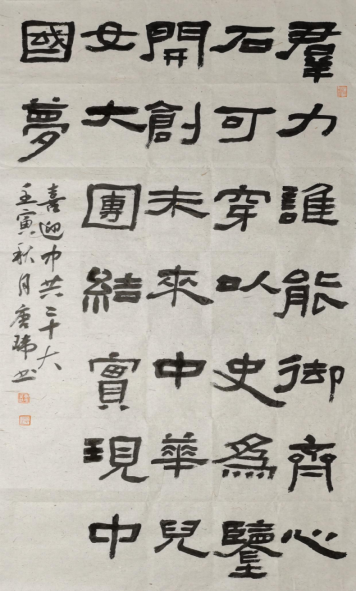 羣力誰能御齊心
石可穿以史為鑒
開創未來中華兒
女大團結實現中
國夢
喜迎中共二十大
壬寅秋月唐瑞书